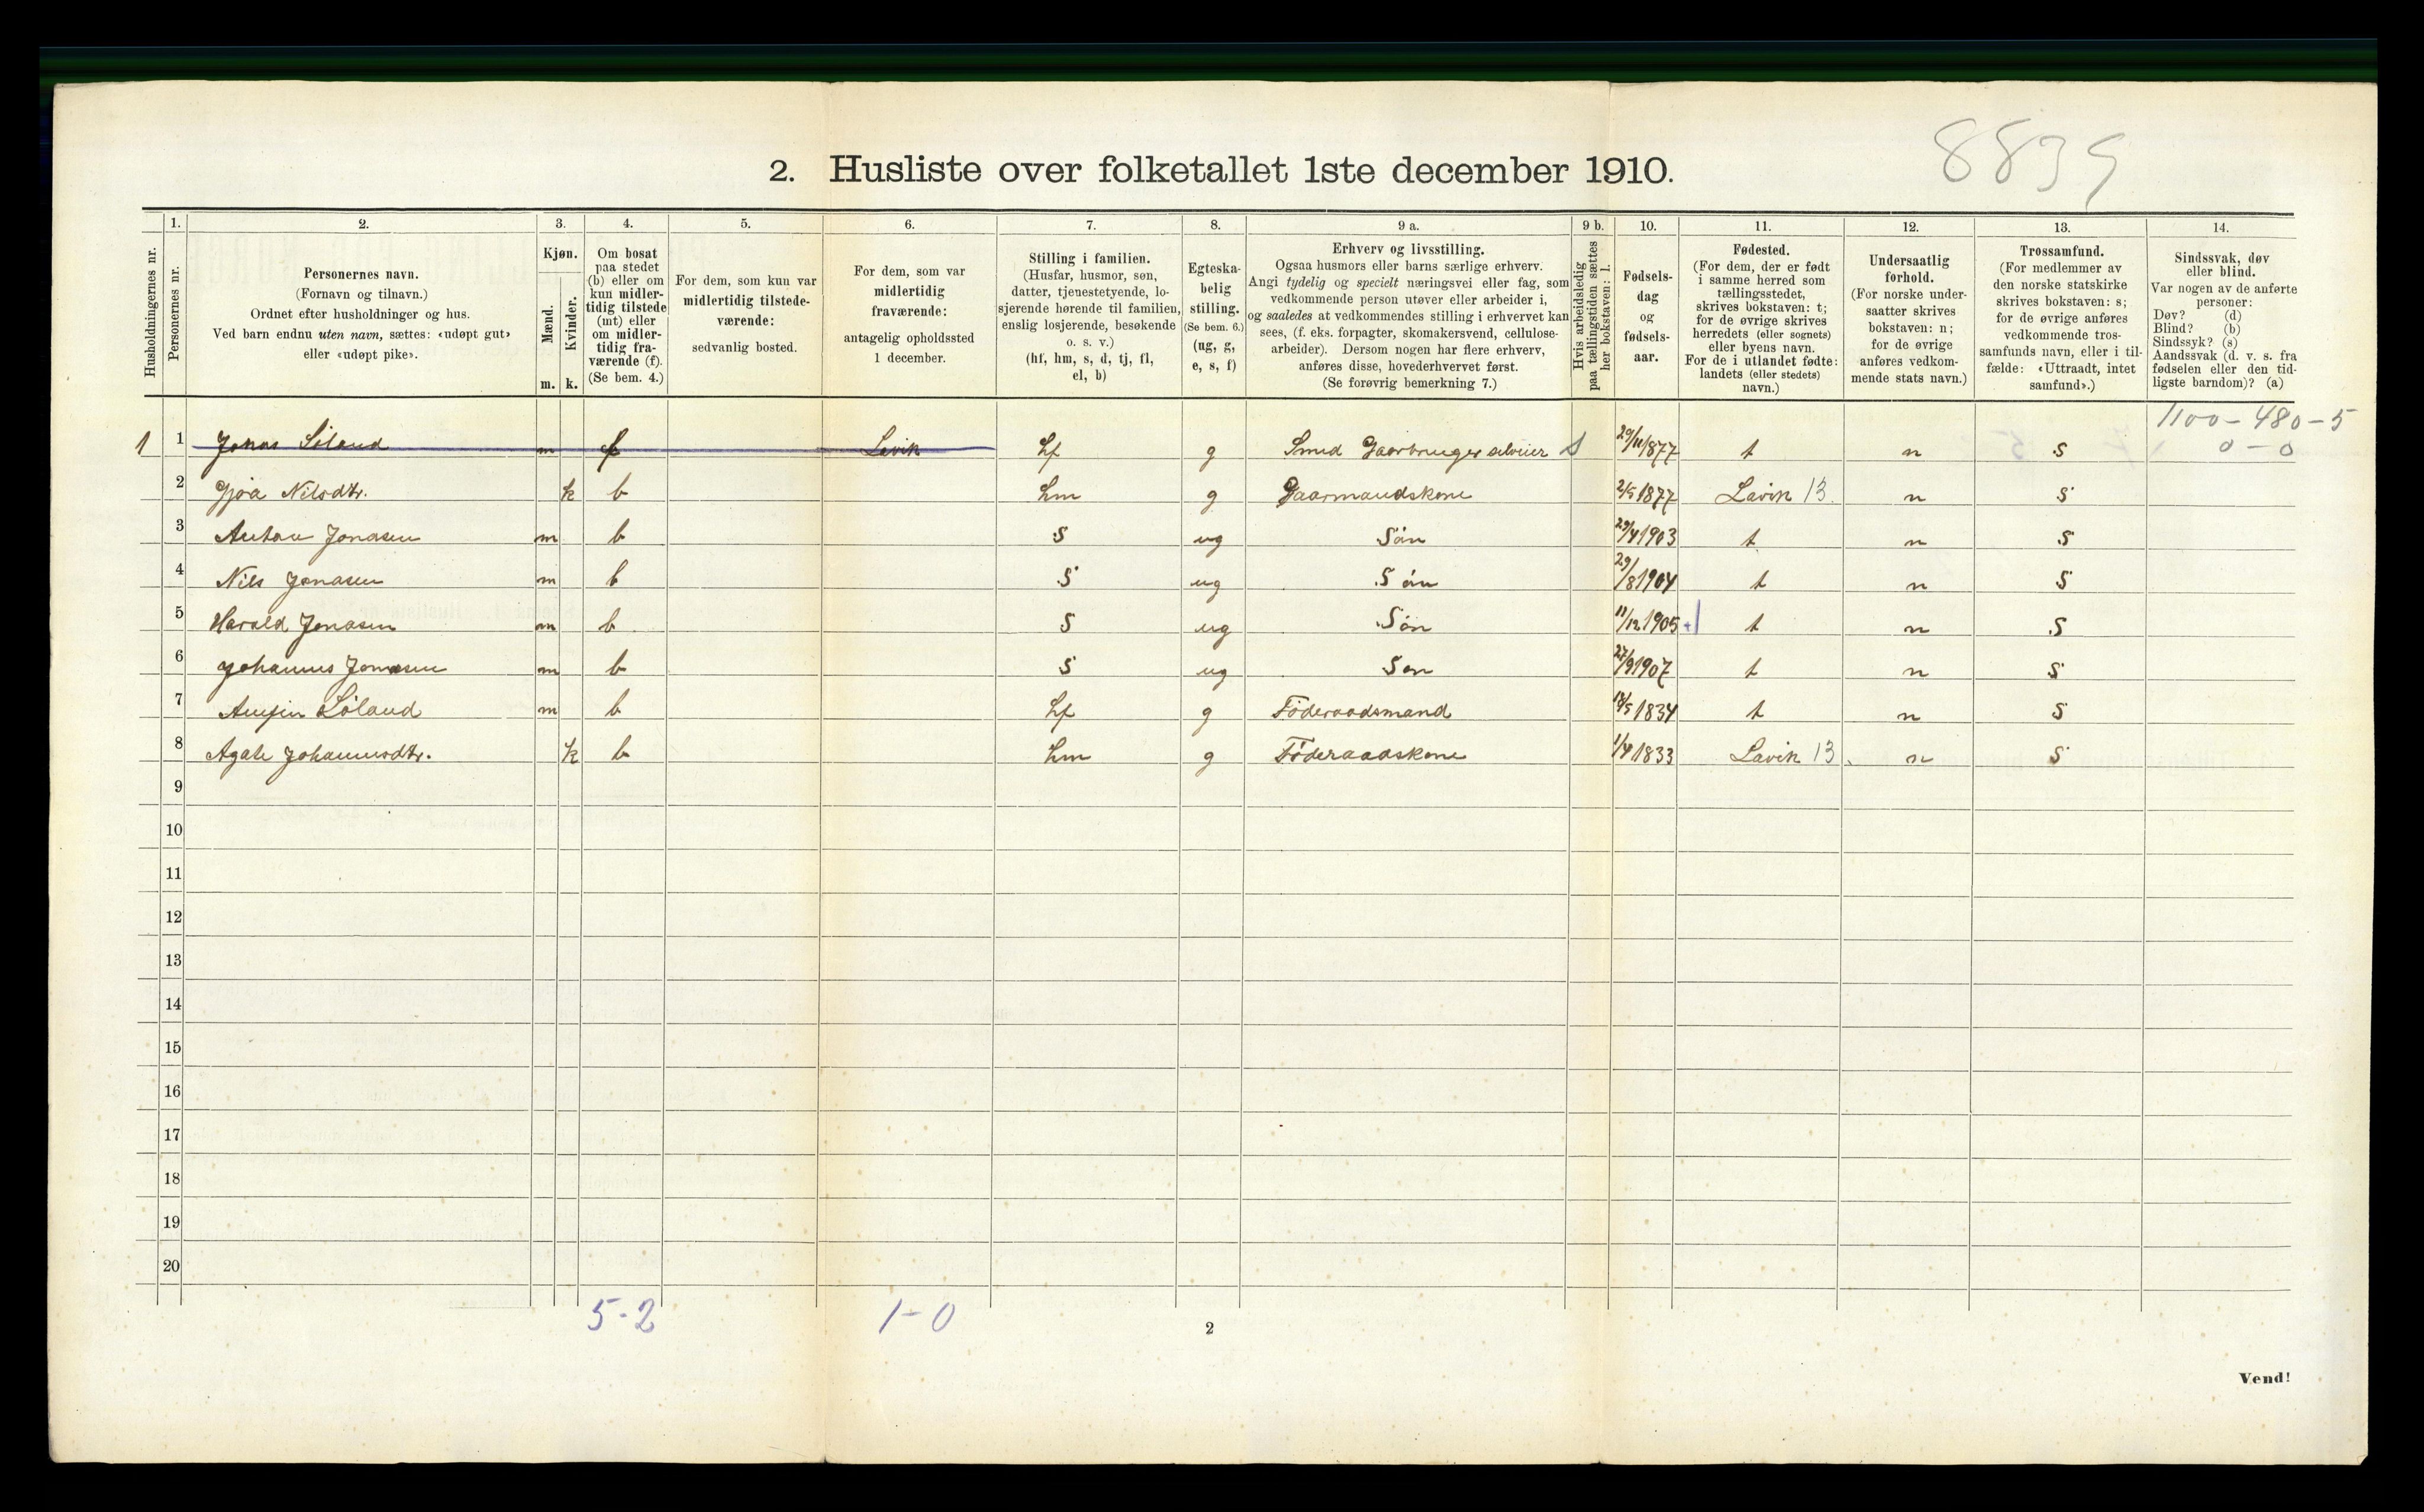 8839
2. Husliste over folketallet 1ste december 1910.
Husholdningernes nr.
1.
Personernes nr.
2.
Personernes navn.
(Fornavn og tilnavn.)
Ordnet efter husholdninger og hus.
Ved barn endnu uten navn, sættes: «udøpt gut»
eller «udøpt pike».
3.
Kjøn.
Mænd.
m.
Kvinder.
k.
4.
Om bosat
paa stedet
(b) eller om
kun midler-
tidig tilstede
(mt) eller
om midler-
tidig fra-
værende (f).
(Se bem. 4.)
5.
For dem, som kun var
midlertidig tilstede-
værende:
sedvanlig bosted.
6.
For dem, som var
midlertidig
fraværende:
antagelig opholdssted
1 december.
7.
Stilling i familien.
(Husfar, husmor, søn,
datter, tjenestetyende, lo-
sjerende hørende til familien,
enslig losjerende, besøkende
o. s. v.)
(hf, hm, s, d, tj, fl,
el, b)
8.
Egteska-
belig
stilling.
(Se bem. 6.)
(ug, g,
e, s, f)
9 a.
Erhverv og livsstilling.
Ogsaa husmors eller barns særlige erhverv.
Angi tydelig og specielt næringsvei eller fag, som
vedkommende person utøver eller arbeider i,
og saaledes at vedkommendes stilling i erhvervet kan
sees, (f. eks. forpagter, skomakersvend, cellulose-
arbeider). Dersom nogen har flere erhverv,
anføres disse, hovederhvervet først.
(Se forøvrig bemerkning 7.)
9 b.
Hvis arbeidsledig
paa tællingstiden sættes
her bokstaven: l.
10.
Fødsels-
dag
og
fødsels-
aar.
11.
Fødested.
(For dem, der er født
i samme herred som
tællingsstedet,
skrives bokstaven: t;
for de øvrige skrives
herredets (eller sognets)
eller byens navn.
For de i utlandet fødte:
landets (eller stedets)
navn.)
12.
Undersaatlig
forhold.
(For norske under-
saatter skrives
bokstaven: n;
for de øvrige
anføres vedkom-
mende stats navn.)
13.
Trossamfund.
(For medlemmer av
den norske statskirke
skrives bokstaven: s;
for de øvrige anføres
vedkommende tros-
samfunds navn, eller i til-
fælde: «Uttraadt, intet
samfund».)
14.
Sindssvak, døv
eller blind.
Var nogen av de anførte
personer:
Døv? (d)
Blind? (b)
Sindssyk? (s)
Aandssvak (d. v. s. fra
fødselen eller den tid-
ligste barndom)? (a)
1100-480-5
0-0
1 1 Jonas m f Lavik hf g Smed Gaarbruger selveier s 29/11 1877 t n s
2 Gjøa Nilsdtr. k b hm g Gaarmandskone 2/5 1877 Lavik 13 n s
3 Anton Jonasen m b s ug Sön 29/4 1903 t n s
4 Nils Jonasen m b s ug Sön 29/8 1904 t n s
5 Harald Jonasen m b s ug Sön 11/12 1905 t n s
6 Johannes Jonasen m b s ug Son 27/9 1907 t n s
7 Anfin m b hf g Föderaadsmand 1834 t n s
8 Agate Johannesdtr. k b hm g Föderaadskone 1/4 1833 Lavik 13 n s
9
10
11
12
13
14
15
16
17
18
19
20
5-2 1-0
2
Vend!